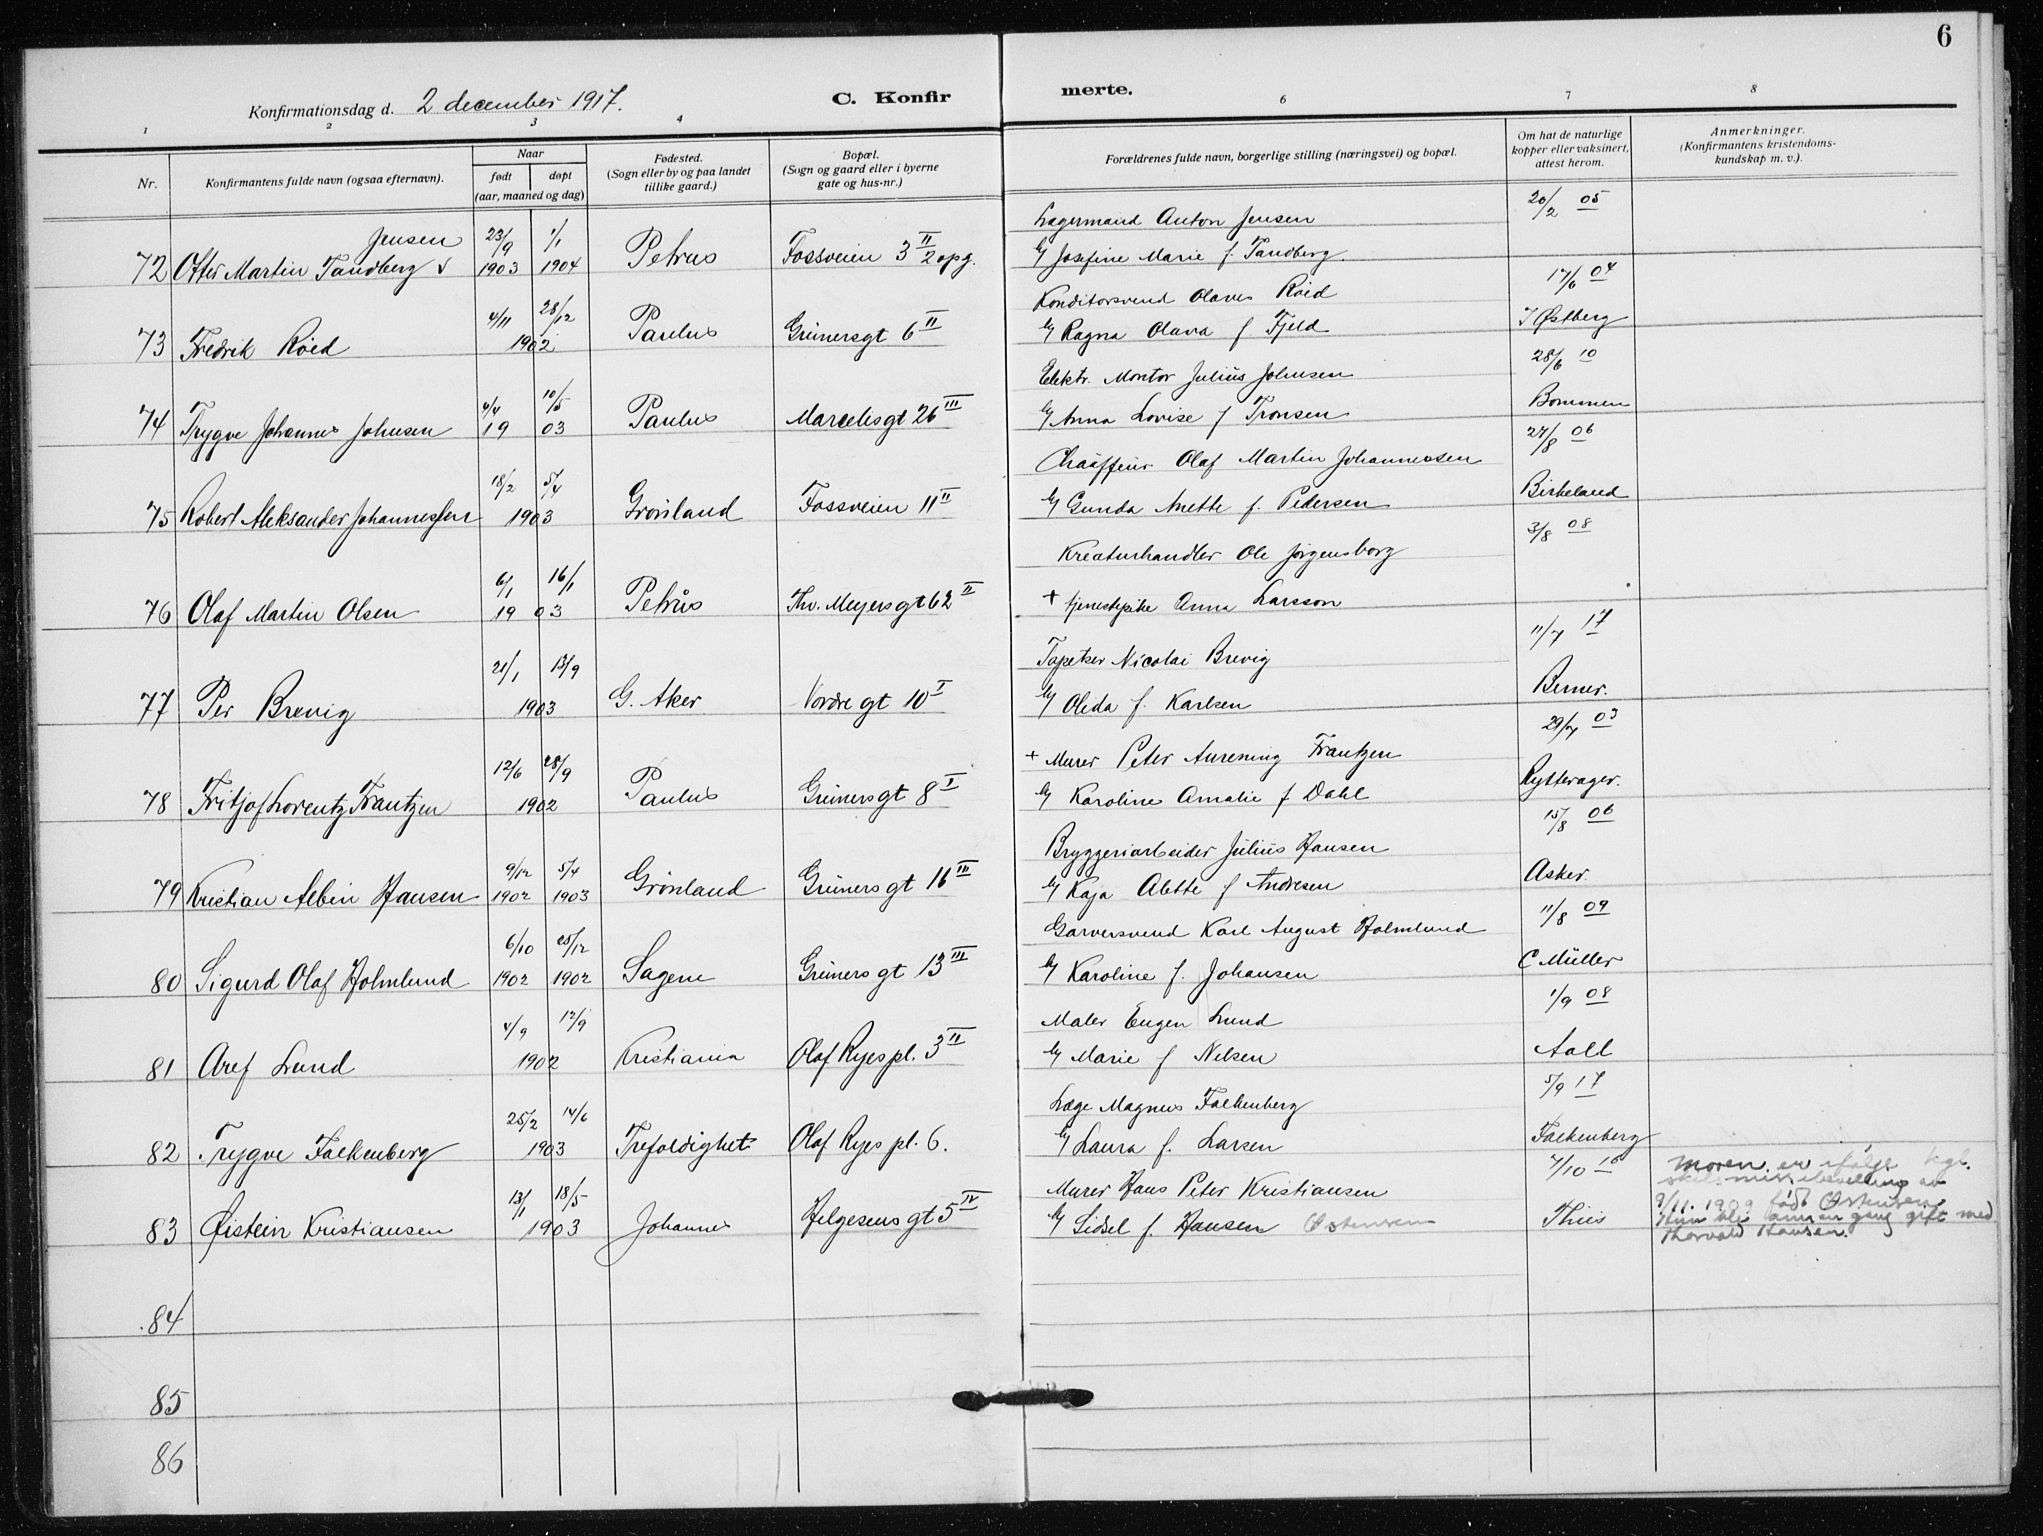 6
Konfirmationsdag d. 2 december 1917.
C. Konfirmerte.
1 2 3 4 6 7 8
Nr.
Konfirmantens fulde navn (ogsaa efternavn).
Naar
født døpt
(aar, maaned og dag)
Fødested.
(Sogn eller by og paa landet
tillike gaard.)
Bopæl.
(Sogn og gaard eller i byerne
gate og hus-nr.)
Forældrenes fulde navn, borgerlige stilling (næringsvei) og bopæl.
Om hat de naturlige
kopper eller vaksinert,
attest herom.
Anmerkninger.
(Konfirmantens kristendoms-
kundskap m. v.).
Jensen 23/9 1/1 Lagermand Anton Jensen 20/2 05
72 Otter Martin Tandberg 1903 1904 Petrus Fossveien 3 II 2opg. Josefine Marie f. Tandberg.
4/11 28/12 Konditorsvend Olaves Röed 17/6 04
73 Fredrik Röed 1902 Paulus Grünersgt 6 II Ragna Olava f Fjeld I Østberg
4/4 10/5 Elektr. Montör Julius Johnsen 28/6 10
74 Trygve Johannes Johnsen 1903 Paulus Marcelisgt 26 III Anna Lovise f Tronsen Bommen
18/2 5/4 Chauffeur Olaf Martin Johannessen 27/8 06
75 Robert Aleksander Johannessen 1903 Grönland Fossveien 11 II Gunda Anette f. Pedersen Birkeland
6/1 16/1 Kreaturhandler Ole Jørgensborg 3/8 08
76 Olaf Martin Olsen 1903 Petrus Thv. Meyersgt 62 II + tjenestepike Anna Larsson
21/1 13/9 Tapetser Nicolai Brevig 11/7 17
77 Per Brevig 1903 G. Aker Nordre gt 10 I Olida f. Karlsen Berner.
12/6 28/9 + Murer Peter Frantzen 29/7 03
78 Fritjof Lorentz Frantzen 1902 Paulus Grünersgt 8 I Karoline Amalie f Dahl Rytterager.
9/12 5/4 Bryggeriarbeider Julius Hansen 15/8 06
79 Kristian Albin Hansen 1902 1903 Grönland Grünersgt 16 III Kaja Alette f Andresen Asker.
6/10 25/12 Garversvend Karl August Holmlund 11/8 09
80 Sigurd Olaf Holmlund 1902 1902 Sagene Grünersgt 13 III Karoline f. Johansen C Müller
4/9 12/9 Maler Eugen Lund 1/9 08
81 Aref Lund 1902 Kristiania Olaf Ryespl. 3 II Marie f Nelsen Aall
25/2 14/6 Læge Magnus Falkenberg 5/9 17
82 Trygve Falkenberg 1903 Trefoldighet Olaf Ryes pl. 6. Laura f. Larsen Falkenberg
13/1 18/5 Murer Hans Peter Kristiansen 7/10 16
83 Øistein Kristiansen 1903 Johannes Helgesens gt 5 IV Sidsel f. Hansen Thiis
Moren er ifølge kgl.
skilsmissebevilling av
9/11. 1909 født
Hun ble annen gang gift med
Thorvald Hansen.
84
85
86